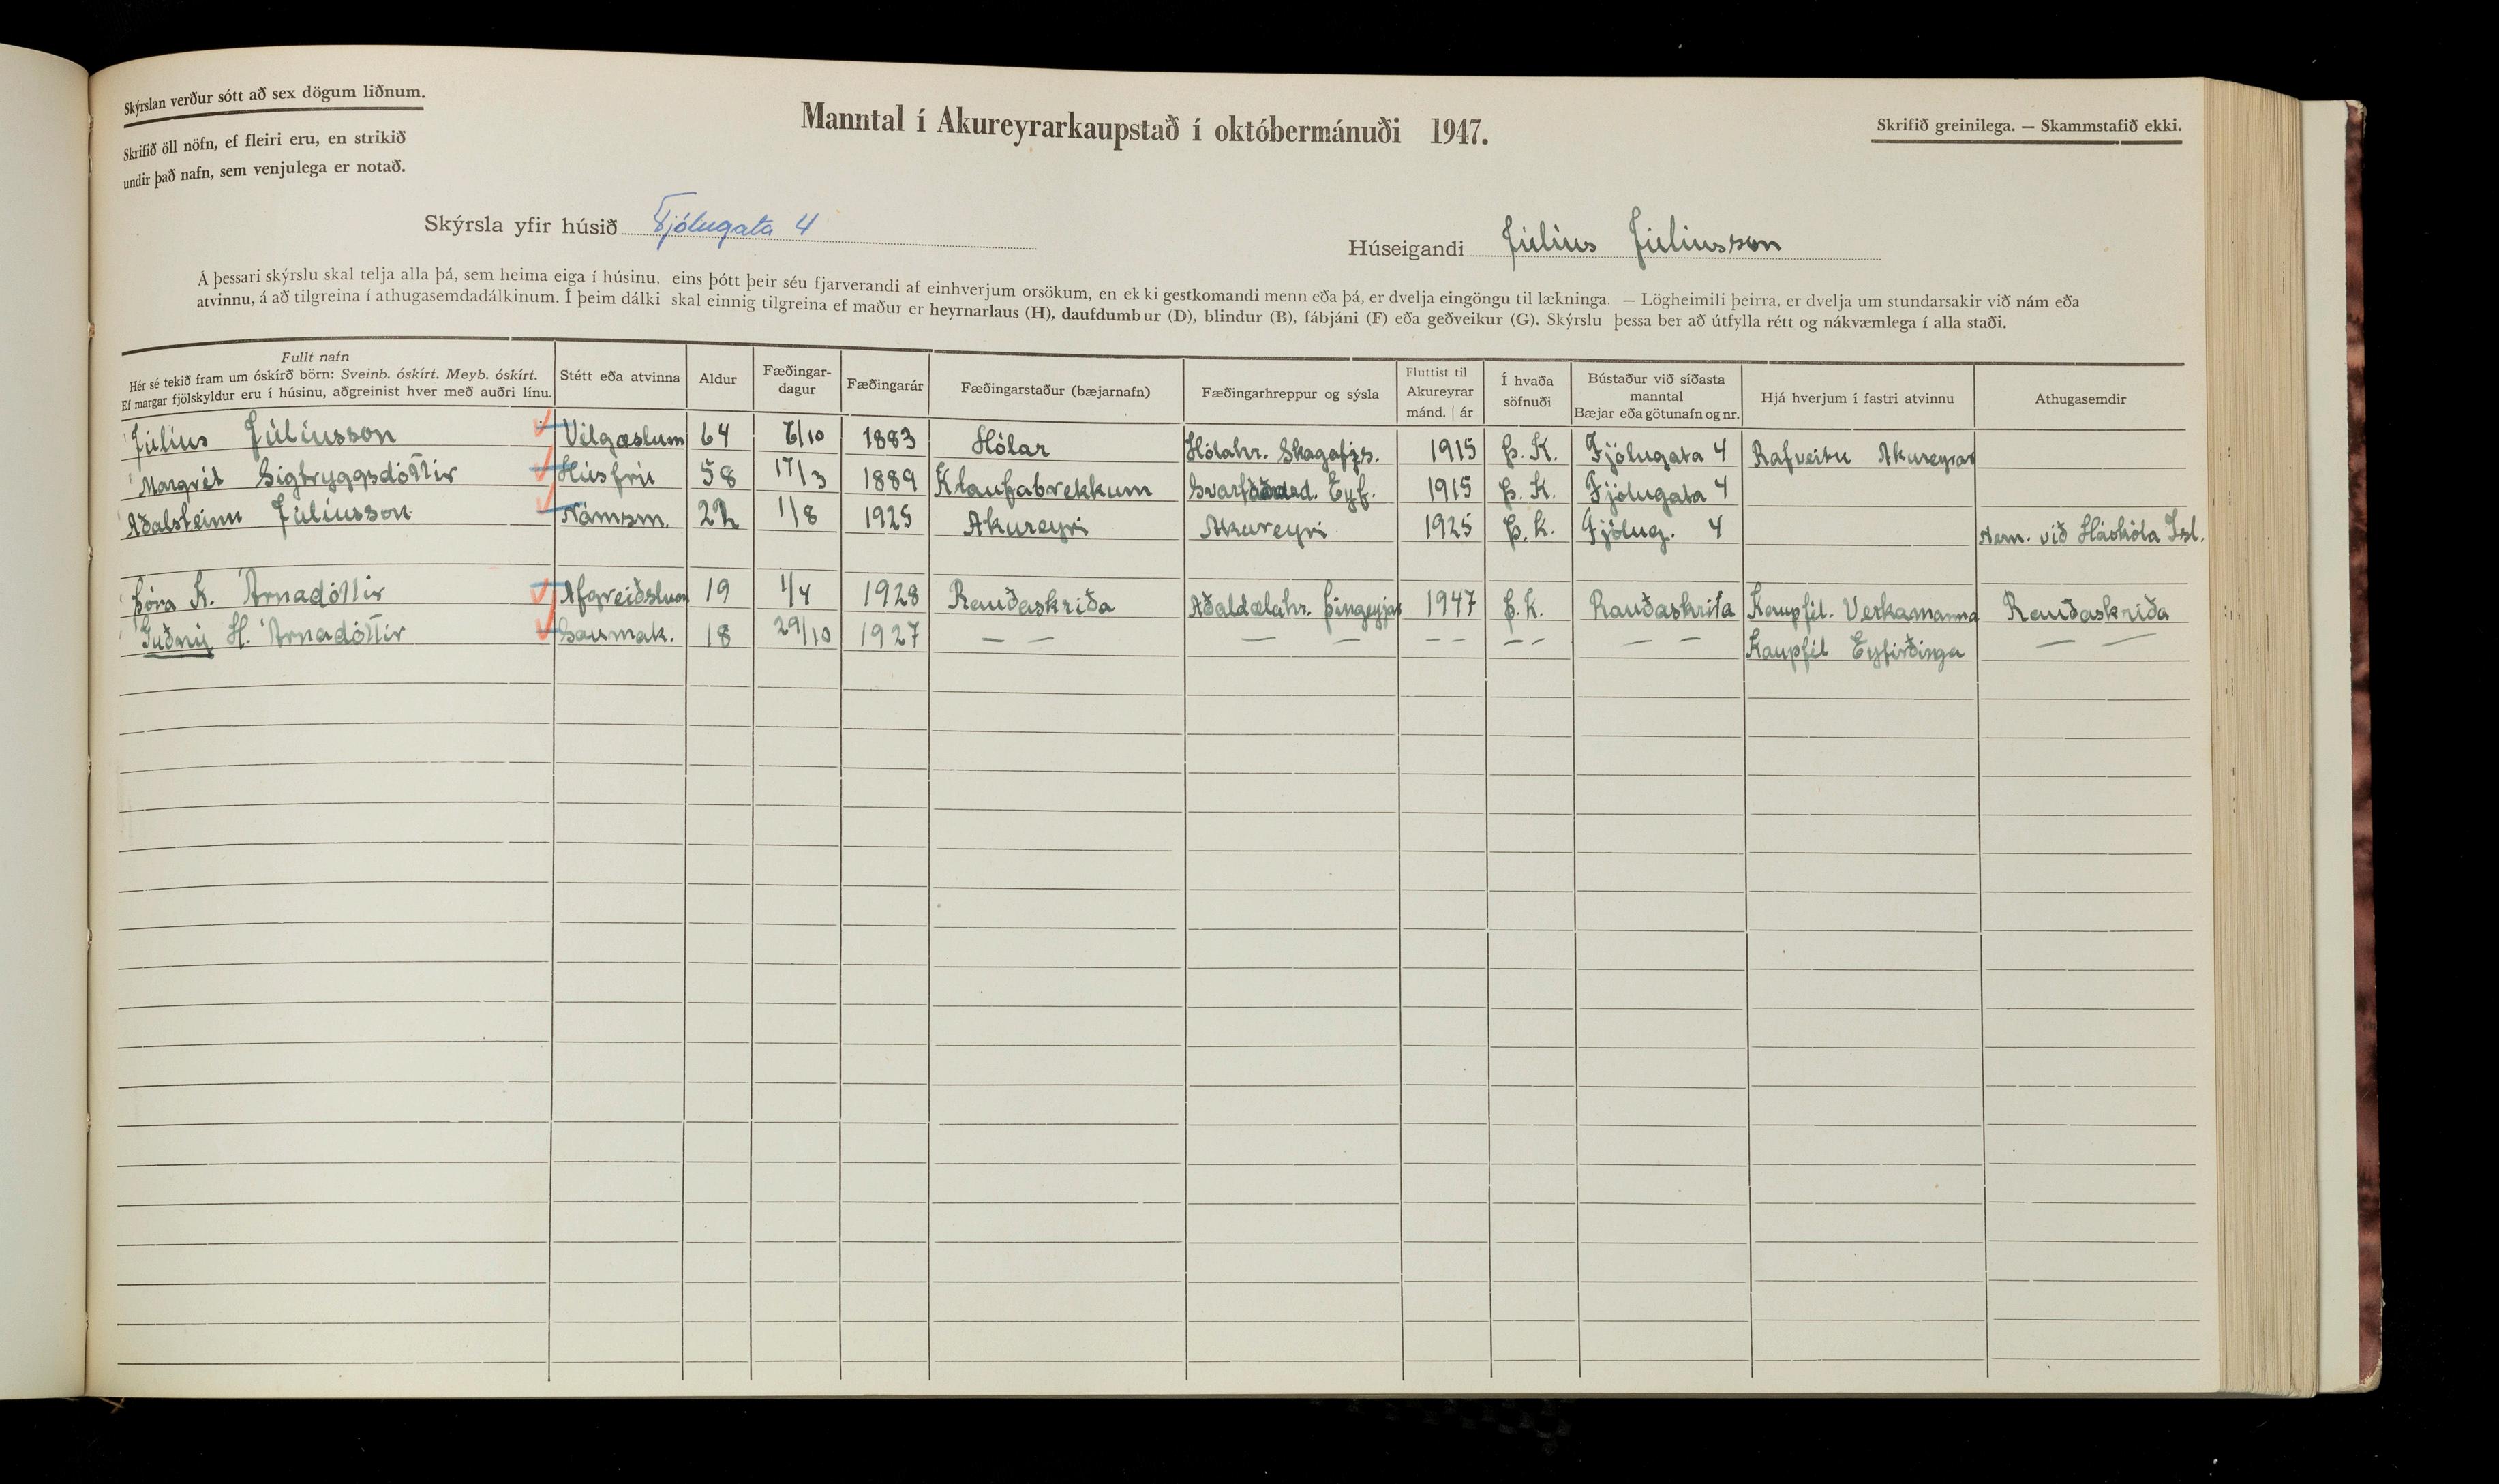 Skýrslan verður sótt að sex dögum liðnum.
Skrifið öll nöfn, ef fleiri eru, en strikið
undir það nafn, sem venjulega er notað.
Manntal í Akureyrarkaupstað í októbermánuði 1947.
Skrifið greinilega. — Skammstafið ekki.
Skýrsla yfir húsið Fjólugata 4
Húseigandi Júlíus Júlíusson
Á þessari skýrslu skal telja alla þá, sem heima eiga í húsinu, eins þótt þeir séu fjarverandi af einhverjum orsökum, en ekki gestkomandi menn eða þá, er dvelja eingöngu til lækninga. — Lögheimili þeirra, er dvelja um stundarsakir við nám eða
atvinnu, á að tilgreina í athugasemdadálkinum. Í þeim dálki skal einnig tilgreina ef maður er heyrnarlaus (H), daufdumbur (D), blindur (B), fábjáni (F) eða geðveikur (G). Skýrslu þessa ber að útfylla rétt og nákvæmlega í alla staði.
Fullt nafn
Hér sé tekið fram um óskírð börn: Sveinb. óskírt. Meyb. óskírt.
Ef margar fjölskyldur eru í húsinu, aðgreinist hver með auðri línu.
Stétt eða atvinna
Aldur
Fæðingar-
dagur
Fæðingarár
Fæðingarstaður (bæjarnafn)
Fæðingarhreppur og sýsla
Fluttist til
Akureyrar
mánd. | ár
Í hvaða
söfnuði
Bústaður við síðasta
manntal
Bæjar eða götunafn og nr.
Hjá hverjum í fastri atvinnu
Athugasemdir
Júlíus Júlíusson Vélgæslum 64 6/10 1883 Hólar Hólahr. Skagafjs. 1915 Þ. K. Fjólugata 4 Rafveitu Akureyrar
Margrét Sigtryggsdóttir Húsfrú 58 17/3 1889 Klaufabrekkum Eyf. 1915 Þ. K. Fjólugata 4
Aðalsteinn Júlíusson Námsm. 22 1/8 1925 Akureyri Akureyri 1925 Þ. K. Fjólug. 4 Nem. við Háskóla Ísl.
Þóra K. Árnadóttir Afgreiðslum 19 1/4 1928 Rauðaskriða Aðaldælahr. Þingeyjas 1947 Þ. K. Rauðaskriða Kaupfél. Verkamanna Rauðaskriða
Guðný H. Árnadóttir Saumak. 18 29/10 1927 — — — — — — — — — — Kaupfél Eyfirðinga — —